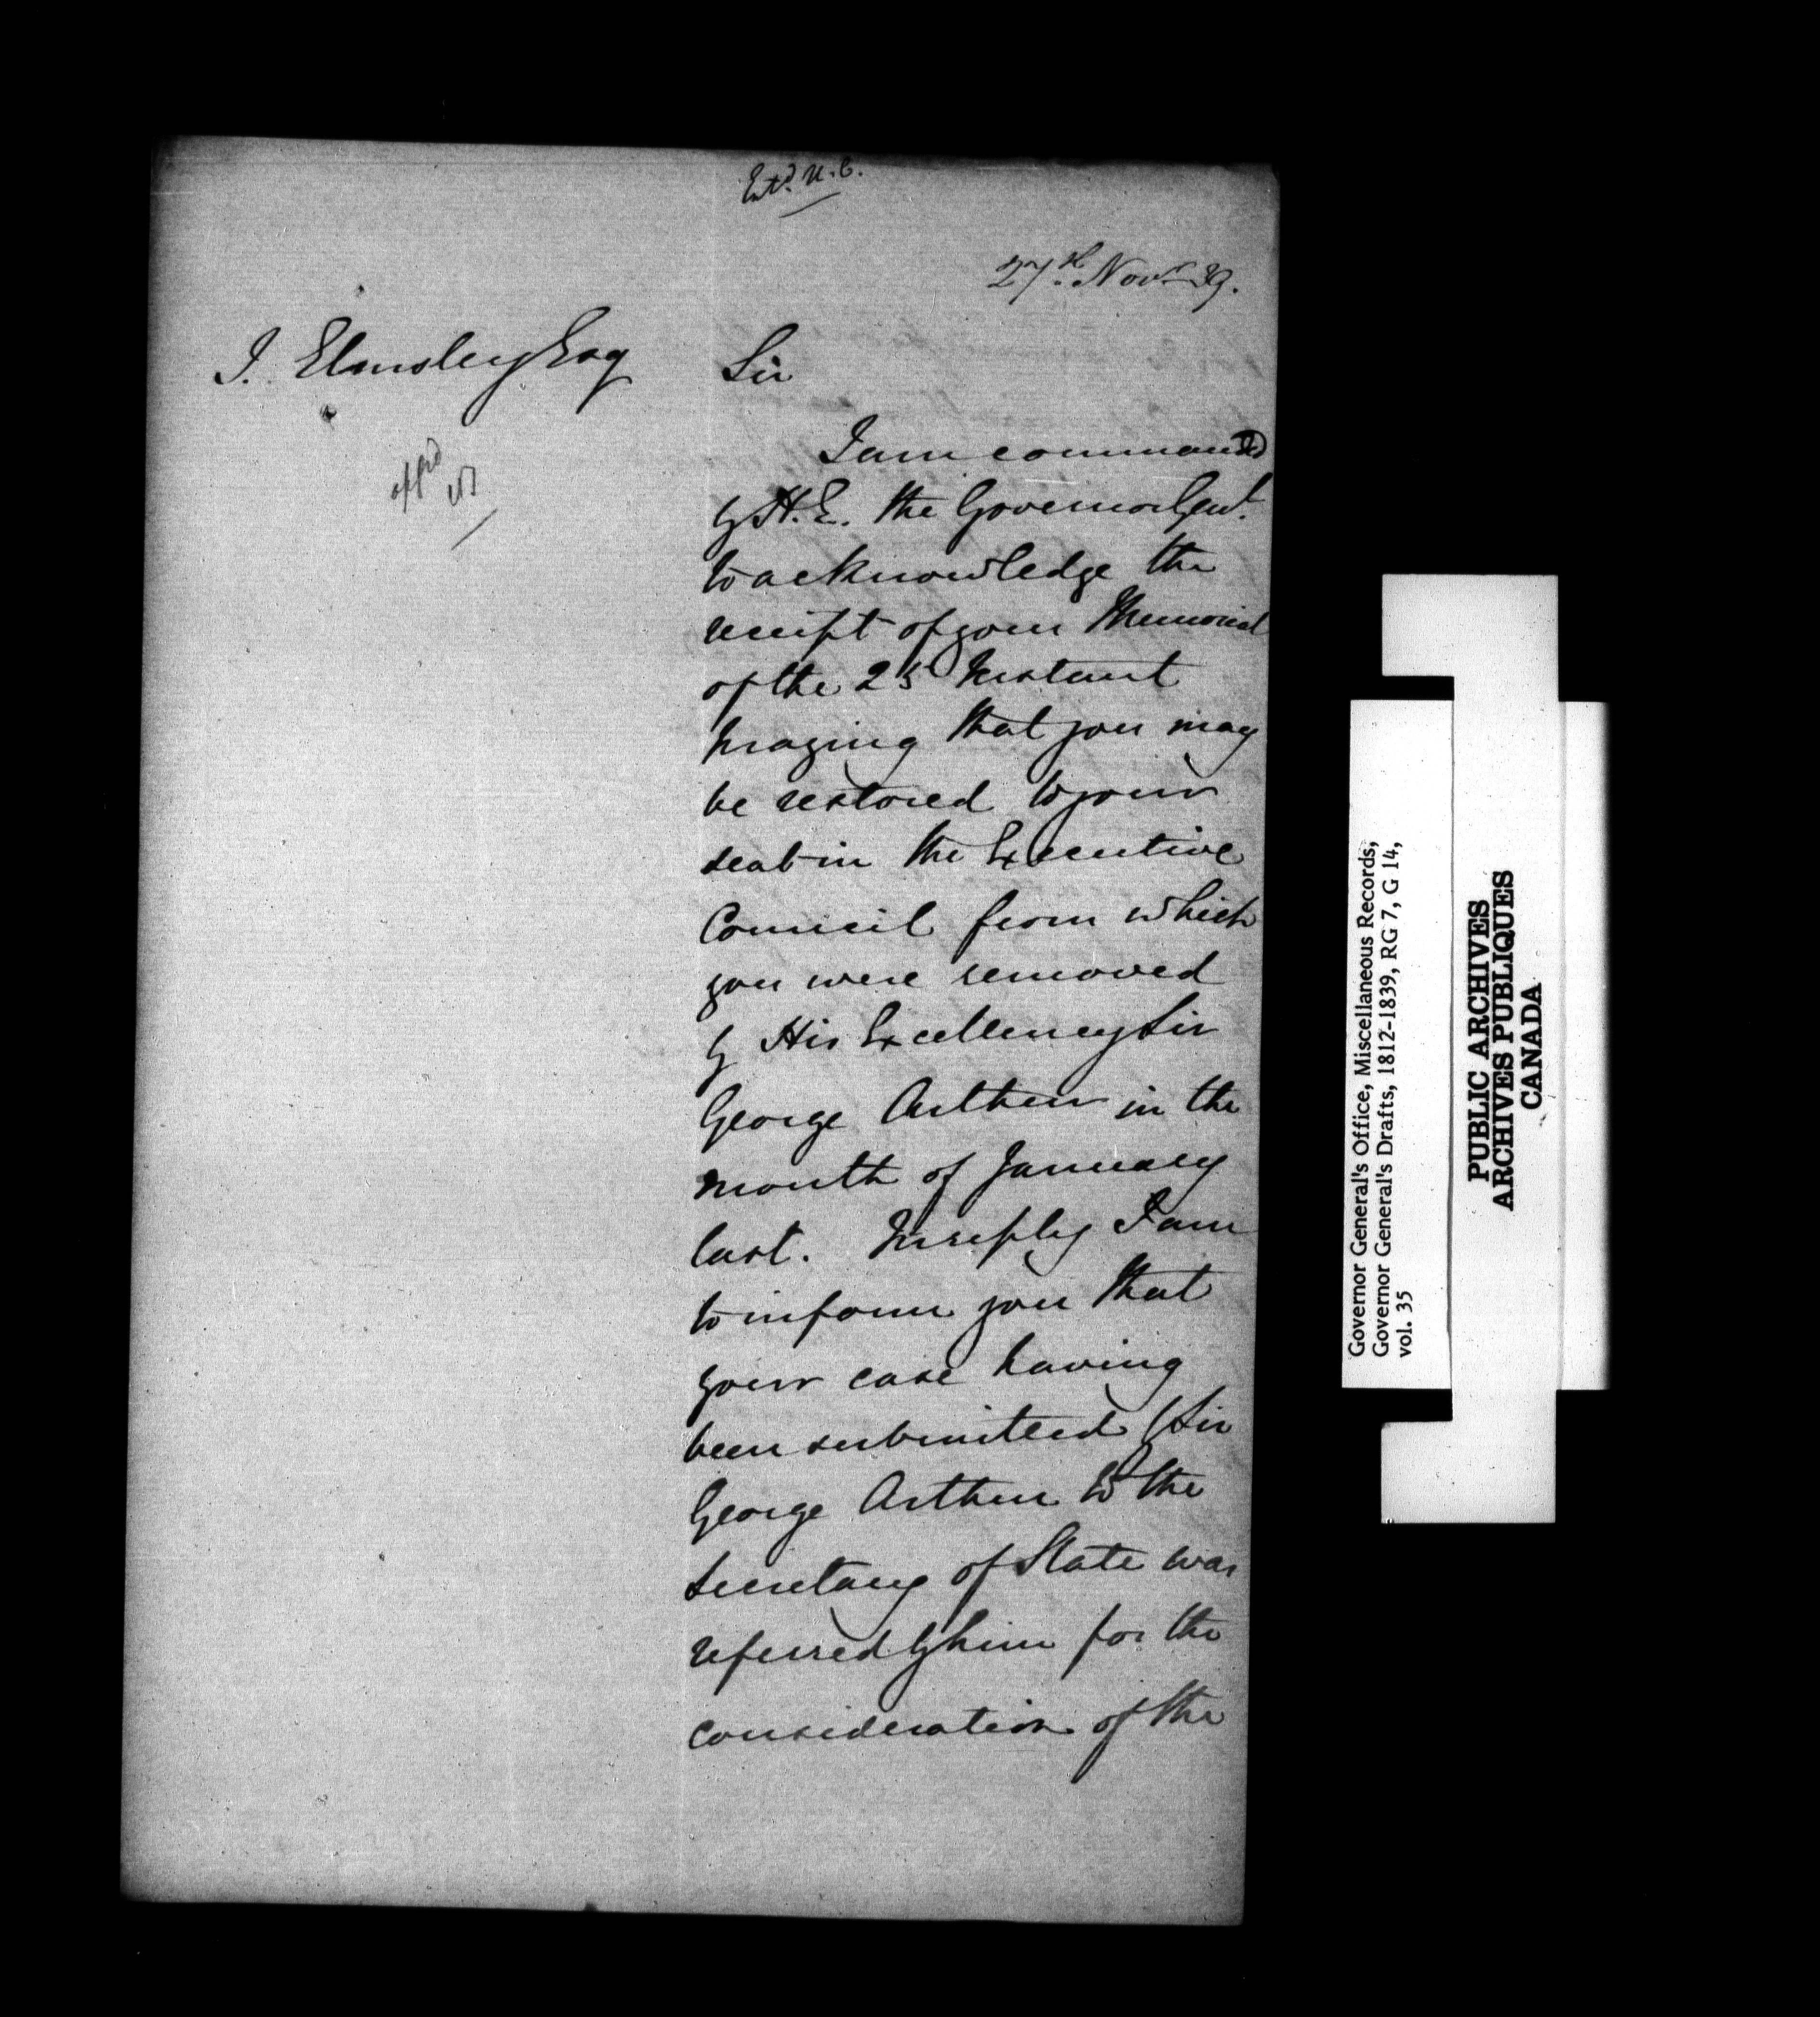 Entd. U.C.
27th Novr 39.
J. Elmsley Esq
Sir
appd
I am commanded
by H.E. the Governor Genl.
to acknowledge the
receipt of your Memorial
of the 25 Instant
praying that you may
be restored to your
seat in the Executive
Council from which
you were removed
by His Excellency Sir
George Arthur in the
month of January
last. In reply I am
to inform you that
your case having
been submitted by Sir
George Arthur to the
Secretary of State was
referred by him for the
consideration of the
Governor General's Office, Miscellaneous Records,
Governor General's Drafts, 1812-1839, RG 7, G 14,
vol. 35
PUBLIC ARCHIVES
ARCHIVES PUBLIQUES
CANADA